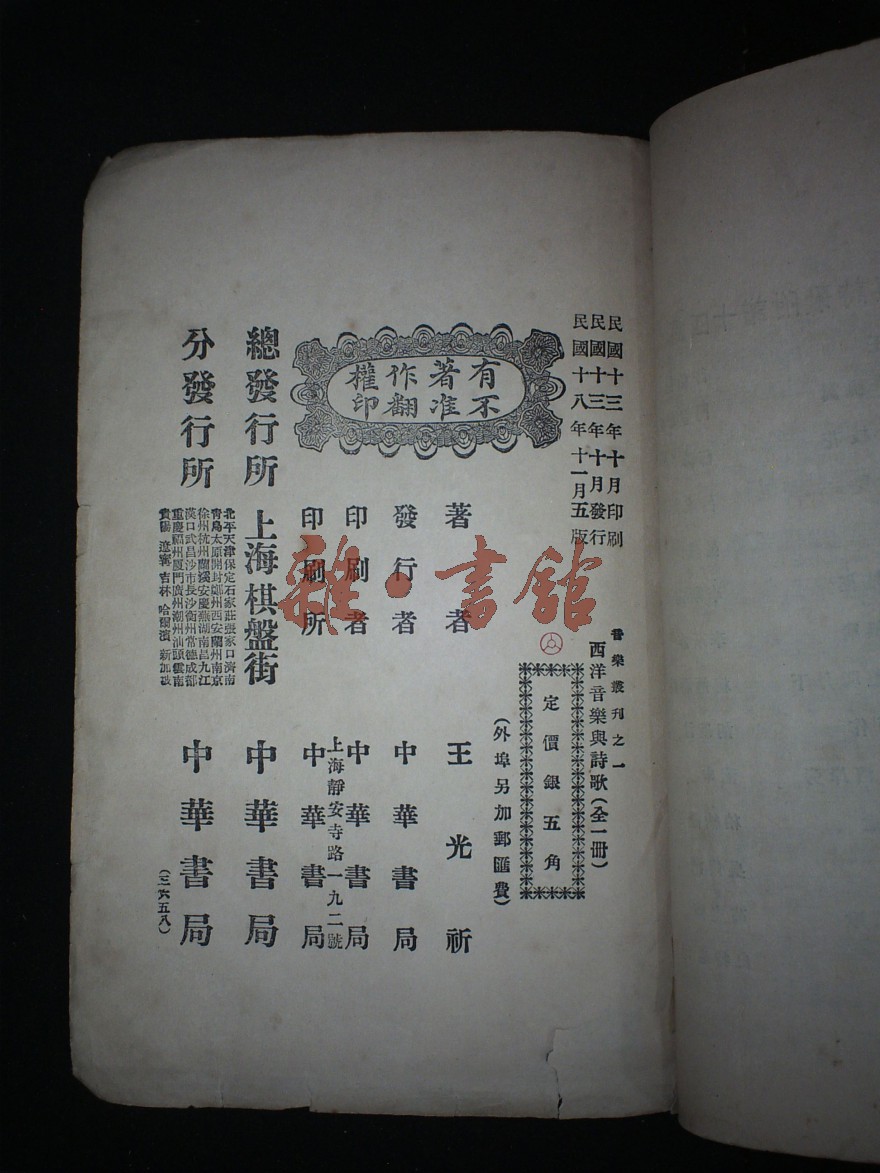 民國十三年十月印刷
民國十三年十月發行
民國十八年十一月五版
音樂叢刊之一
西洋音樂與詩歌(全一冊)
定價銀五角
(外埠另加郵匯費)
有著作權
不准翻印
著者 王光祈
發行者 中華書局
印刷者 中華書局
上海靜安寺路一九二號
印刷所 中華書局
總發行所 上海棋盤街 中華書局
分發行所
北平天津保定石家莊張家口濟南
青島太原開封鄭州西安蘭州南京
徐州杭州蘭谿安慶蕪湖南昌九江
漢口武昌沙市長沙衡州常德成都
重慶福州廈門廣州潮州汕頭雲南
貴陽 遼寧 吉林 哈爾濱 新加坡
中華書局
(三六五八)
雜·書館